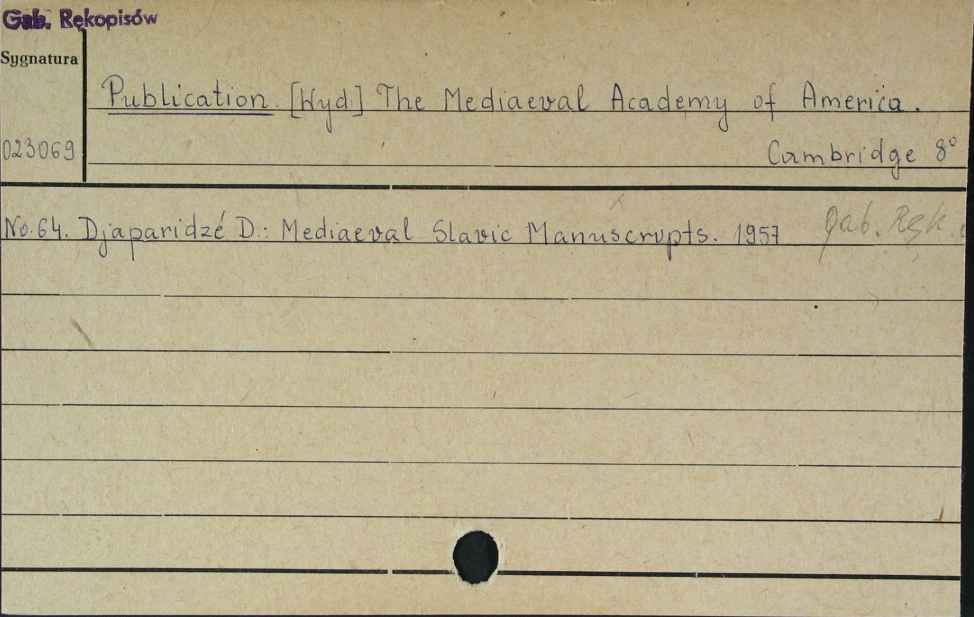 Gab. Rękopisów
Sygnatura
Publication. [Wyd] The Mediaeval Academy of America.
023069
Cambridge 8°
No. 64. Djaparidzé D.: Mediaeval Slavic Manuscrupts. 1957 Gab. Ręk.